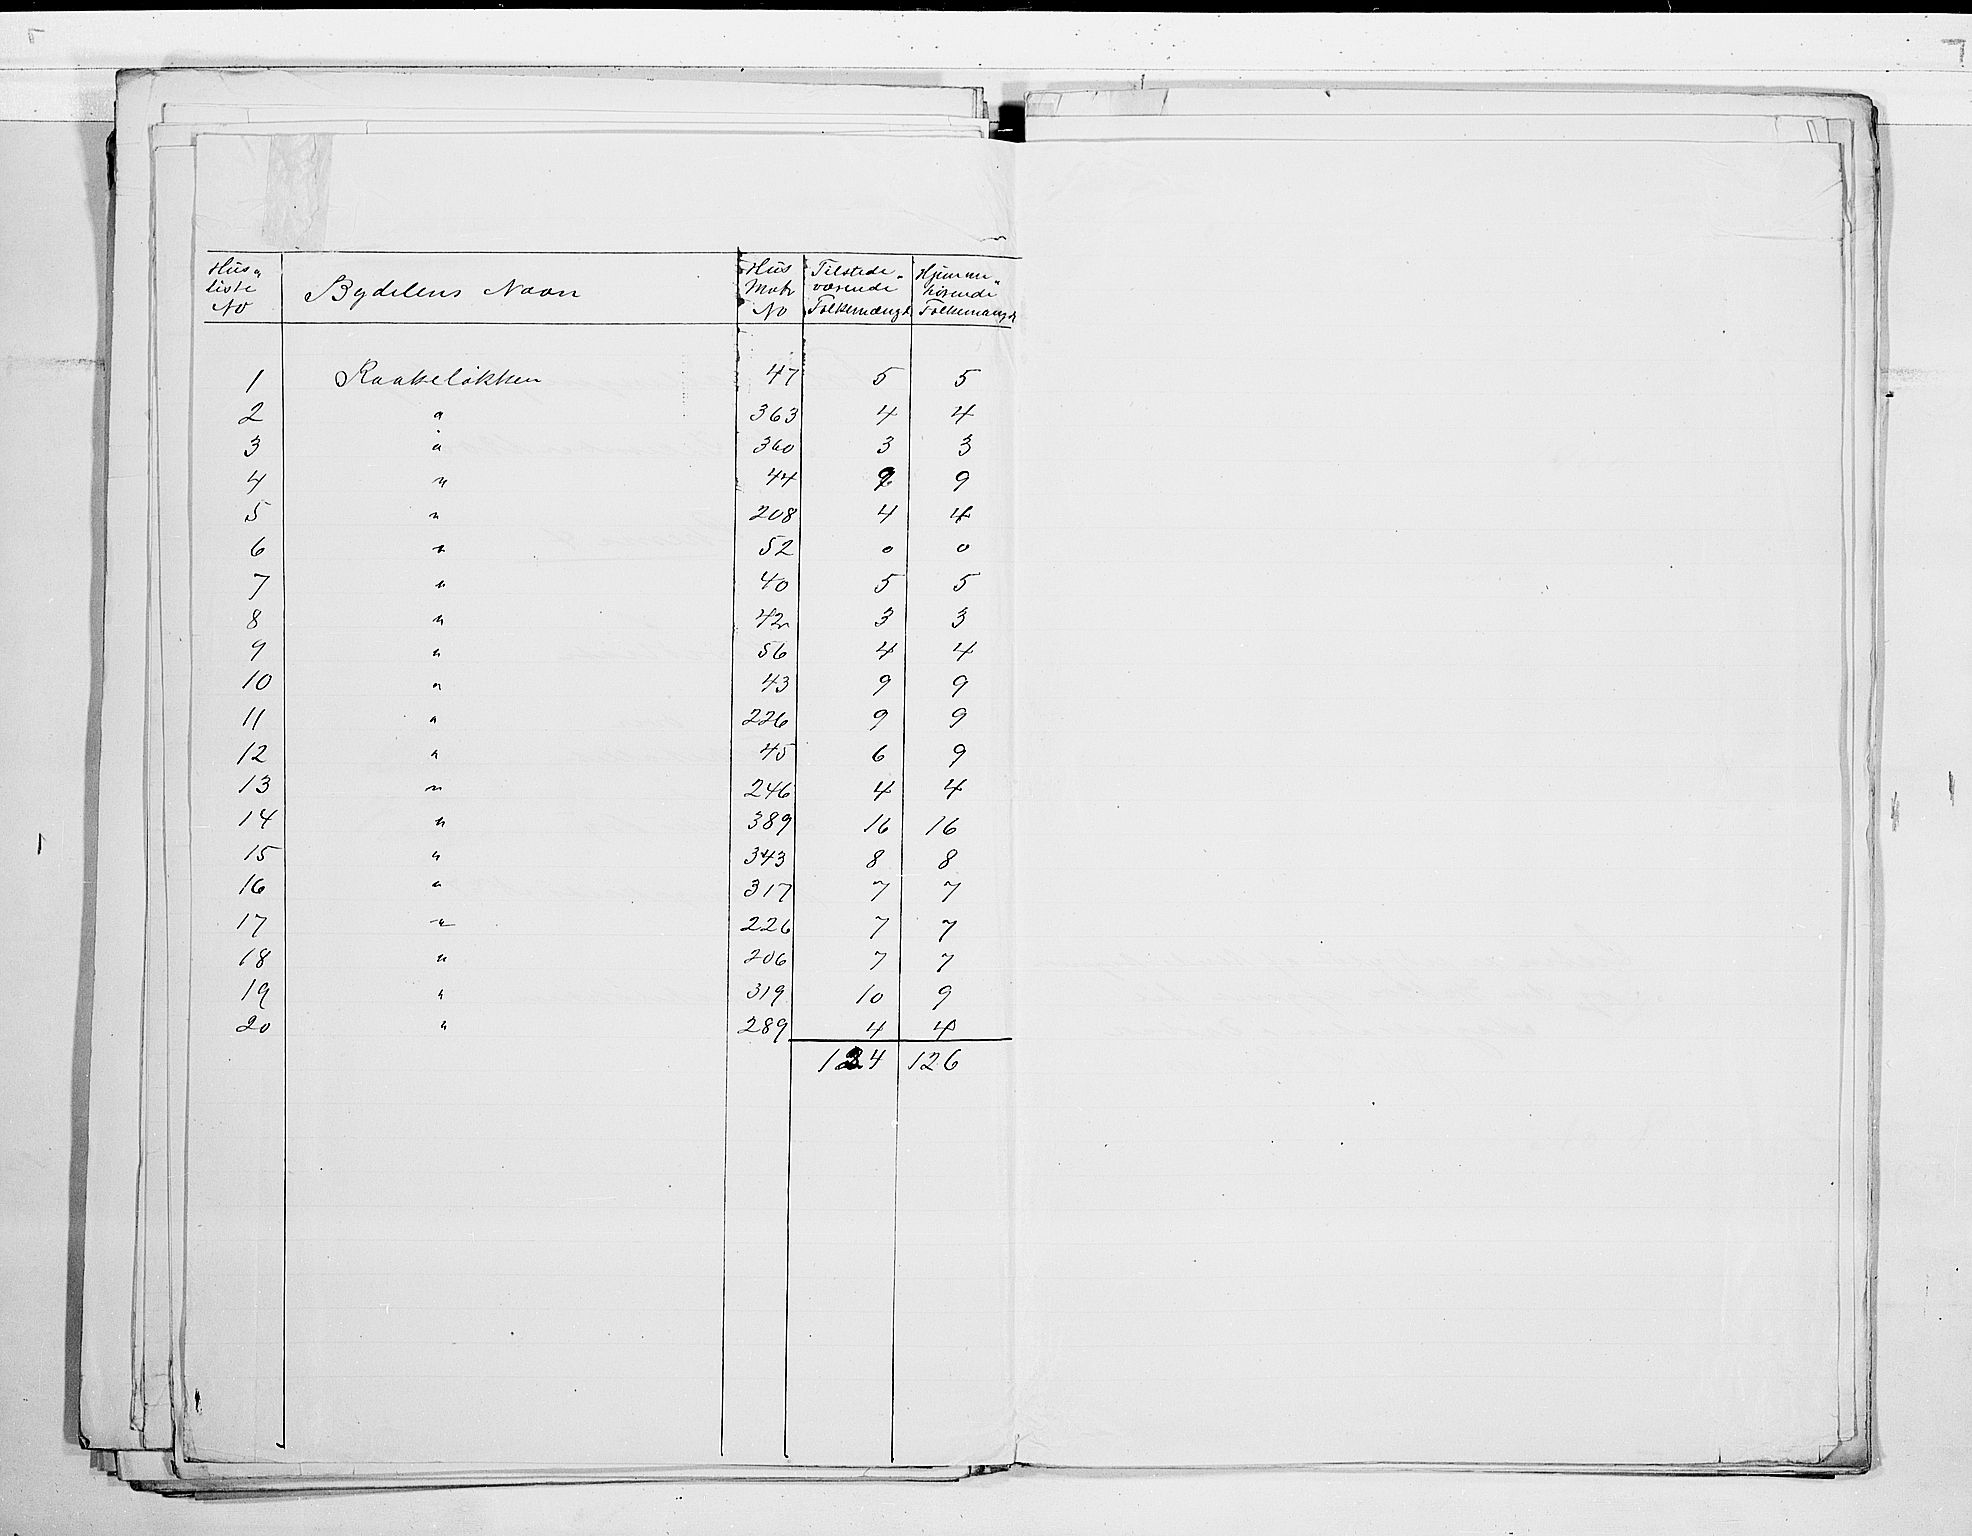 Hus" Bydelens Navn Hus Tilstede" Hjemme"
liste Matr værende hörende
No No Folkemængde Folkemængde
1 Raakeløkken 47 5 5
2 " 363 4 4
3 " 360 3 3
4 " 44 9 9
5 " 208 4 4
6 " 52 0 0
7 " 40 5 5
8 " 42 3 3
9 " 56 4 4
10 " 43 9 9
11 " 226 9 9
12 " 45 6 9
13 " 246 4 4
14 " 389 16 16
15 " 343 8 8
16 " 317 7 7
17 " 226 7 7
18 " 206 7 7
19 " 319 10 9
20 " 289 4 4
124 126